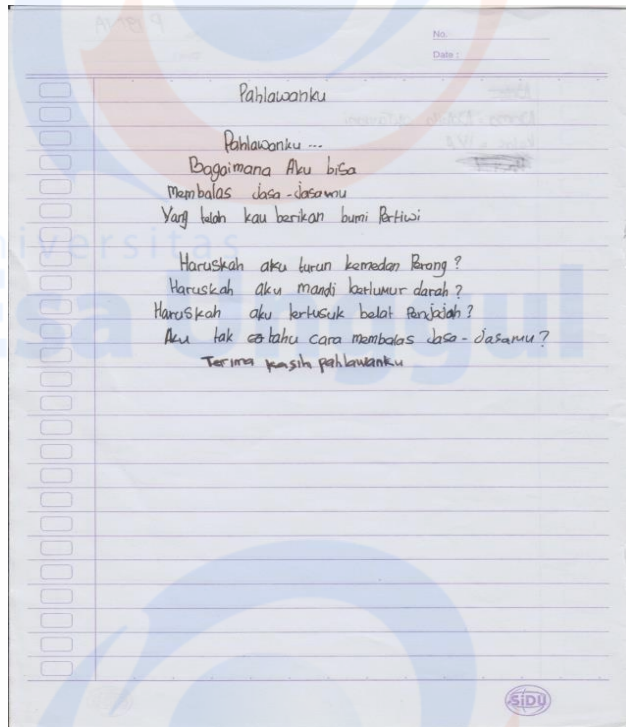 No.
Date :
Pahlawanku
Pahlawanku ...
Bagaimana Aku bisa
Membalas Jasa-Jasamu
Yang telah kau berikan bumi Pertiwi
Haruskah aku turun kemedan Perang ?
Haruskah aku mandi berlumur darah ?
Haruskah aku tertusuk belat Penjajah ?
Aku tak tahu cara membalas Jasa-Jasamu ?
Terima kasih pahlawanku
Universitas
Esa Unggul
SiDU